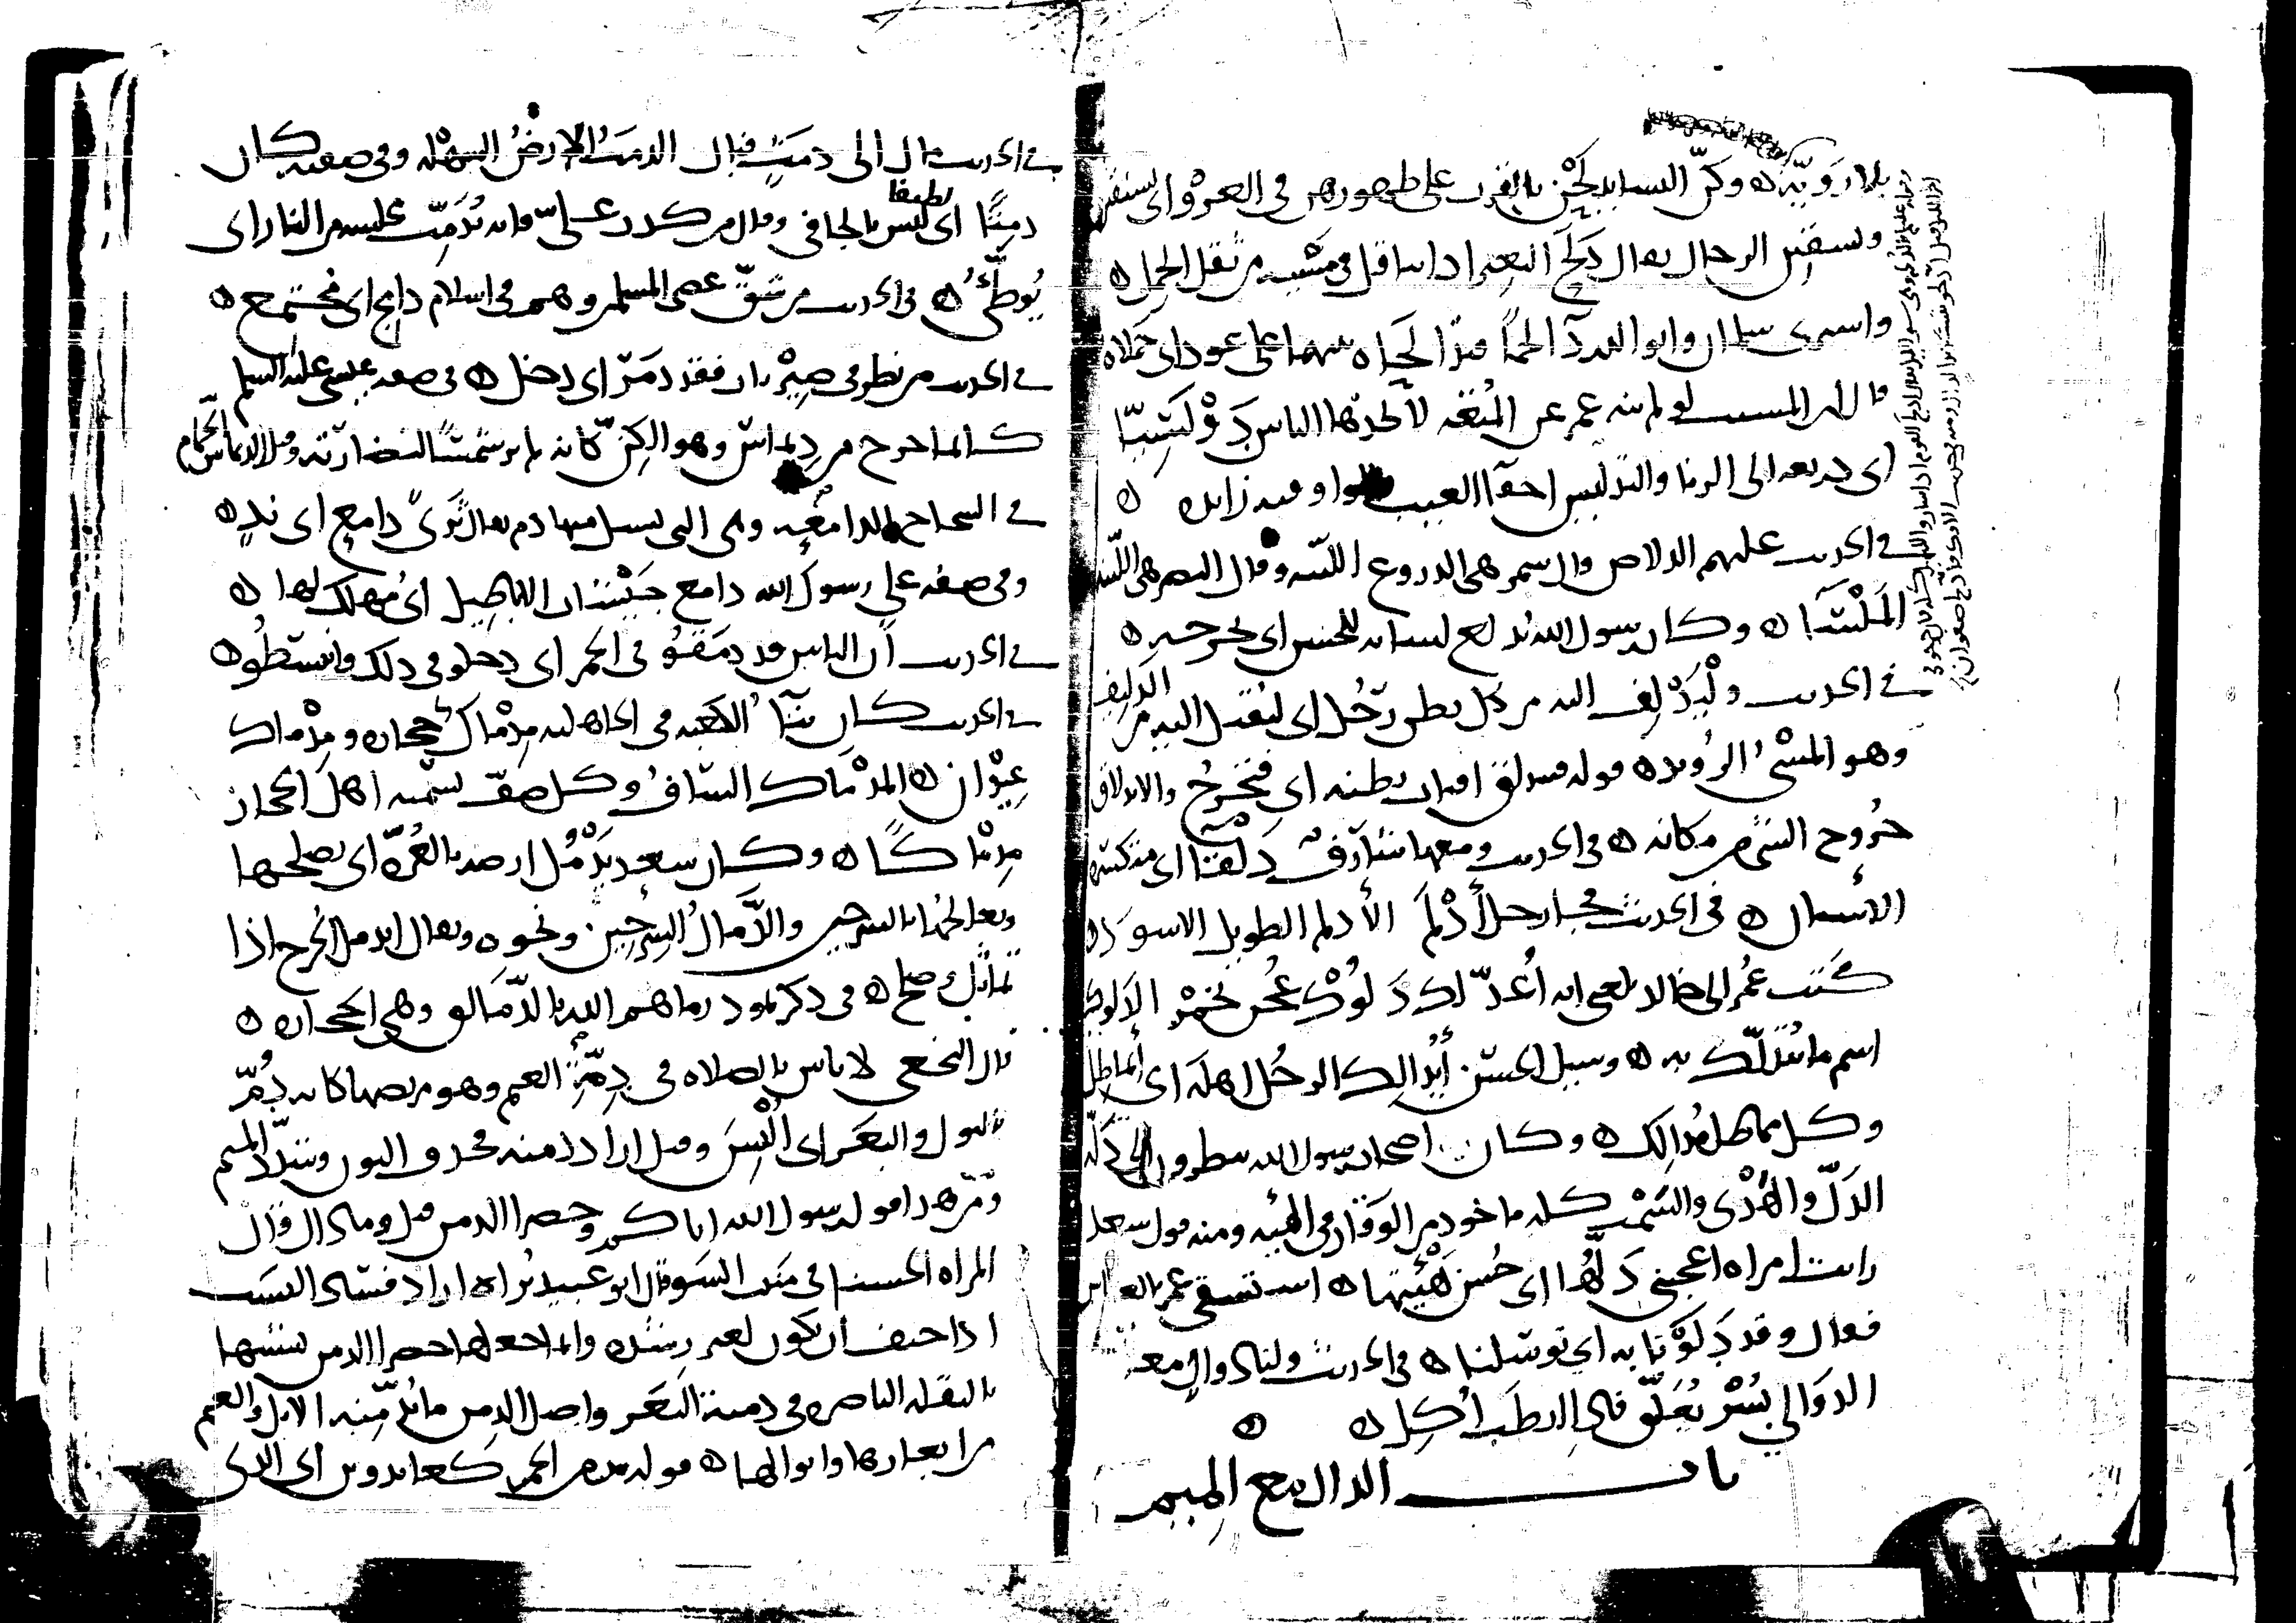 بلا رَوِيّة ه وكنّ النساء يدلجن بالقرب على ظهورهن في الغزو أي يستقين
ويسقين الرجال يقال دَلَج البعير إذا تثاقل في مشيه من ثقل الحمل ه
واشترى سلمان وأبو الدرداء لحمًا فتدالجاه بينهما على عود أي حملاه
قال ابن المسيب لو لم ينه عمر عن المتعة لاتخذها الناس دَوْلَسِيًّا
أي ذريعة إلى الزنا والتدليس إخفاء العيب والواو فيه زائدة ه
في الحديث عليهم الدلاص قال شمر هي الدروع اللينة وقال النضر هي اللينة
المَلْسَاء ه وكان رسول الله يدلع لسانه للحسن أي يخرجه ه
في الحديث وليَدْلِف إليه من كل بطن رَجُل أي ليقبل إليه من الدليف
وهو المشي الرويد ه قوله فتندلق أقتاب بطنه أي فتخرج والاندلاق
خُروج الشيء من مكانه ه في الحديث ومعها شارف دلقاء أي متكسرة
الأسنان ه في الحديث فجاء رجل أَدْلَم الأدلم الطويل الأسود ه
كَتب عُمر إلى خالد بلغني أنه أُعدّ لك دَلُوك عُجن بخمر الدلوك
اسم ما يُتدلّك به ه وسئل الحسن أيُدالك الرجُل أهله أي يماطل
وكل مماطل مُدالِك ه وكان أصحاب رسول الله ينظرون إلى دَلّه
الدَلّ والهَدْي والسَمْت كله مأخوذ من الوَقار في الهيئة ومنه قول سعد
رأيت امرأة أعجبني دَلّها أي حُسن هَيْئتها ه استسقى عمر بالعباس
فقال وقد دَلَوْنا به أي توسلنا ه في الحديث ولنا دوالٍ معلقة
الدَوَالي بُسْر يُعَلّق فإذا أرطب أُكِل ه ه
باب الدال مع الميم
في الحديث مال إلى دمَثٍ فبال الدمَث الأرض السهلة وفي صفته كان
دمثًا أي ليس بالجافي لطيفا وقال من كذب عليّ فإنه يُدَمِّث مجلسه من النار أي
يُوطّئ ه في الحديث من شقّ عصى المسلمين وهم في إسلام دامج أي مجتمع ه
في الحديث من نظر في صِيْر باب فقد دمَر أي دخل ه في صفة عيسى عليه السلم
كأنما خرج من دِيماس وهو الكِنّ كأنه لم ير شمسًا لنضارته وقيل الديماس الحمام
في الشجاج الدامعة وهي التي يسيل منها دم يقال ثَرىً دامع أي ندٍ ه
وفي صفة علي رسول الله دامغ جَيْشات الأباطيل أي مُهلك لها ه
في الحديث أن الناس قد دمَقوُا في الخمر أي دخلو في ذلك وانبسطوا ه
في الحديث كان بنآ الكعبه في الجاهليه مِدْماك حجارة ومِدْماك
عِيْدان ه المدْمَاك السّاف وكل صفّ يسميه أهل الحجاز
مِدْمَاكًا ه وكان سعد يَدْمُل أرضه بالعُرّة أي يصلحها
ويعالجها بالسرجين والدَّمال السِرْجين ونحوه ويقال اندمل الجُرح إذا
تماثل وصلح ه في ذكر ثمود رماهم الله بالدمالق وهي الحجارة ه
قال النخعي لا باس بالصلاة في دِمّةِ الغنم وهو مربضها كأنه دُمّ
بالبول والبعر أي أُلْبِس وقيل أراد دمنة فحذف النون وشدّد الميم
قوله رسول الله إياكم وخضراء الدمن قيل وما ذاك قال
المرأة الحسناء في منبت السوء قال أبو عبيد نُراه أراد فساد النسب
إذا خيف أن يكون لغير رشدة وإنما جعلها خضراء الدمن تشبيها
بالبقلة الناضرة في دمنة البَعَر وأصل الدِمن ما تُدَمّنه الإبل والغنم
من أبعارها وأبوالها ه قوله مدمن الخمر كعابد وثن أي الذي